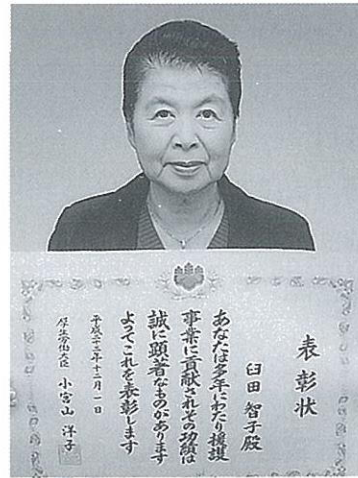 表彰状
臼田 智子殿
あなたは多年にわたり援護
事業に貢献されその功績は
誠に顕著なものがあります
よってこれを表彰します
平成二十三年十二月一日
厚生労働大臣 小宮山 洋子